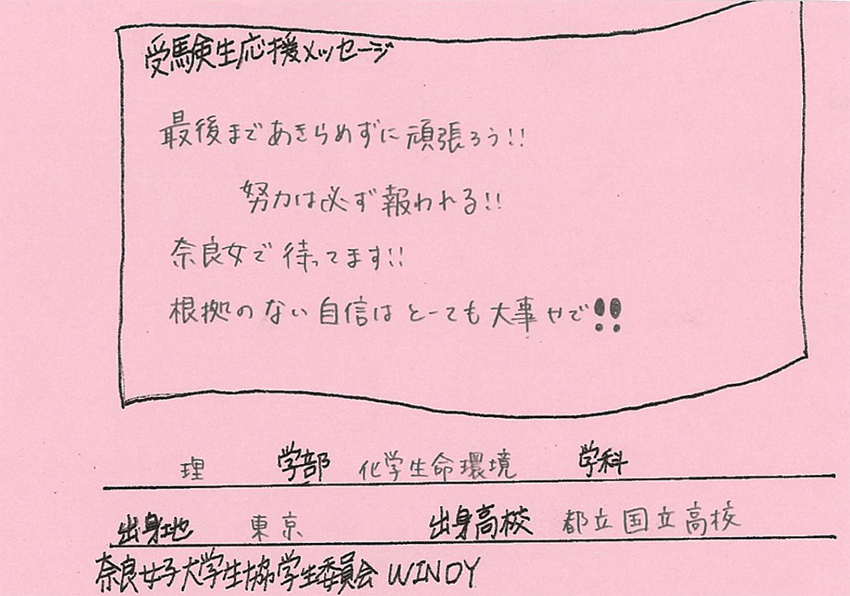 受験生応援メッセージ
最後まであきらめずに頑張ろう!!
努力は必ず報われる!!
奈良女で待ってます!!
根拠のない自信はとーても大事やで!!
理 学部 化学生命環境 学科
出身地 東京 出身高校 都立国立高校
奈良女子大学生協学生委員会 WINDY